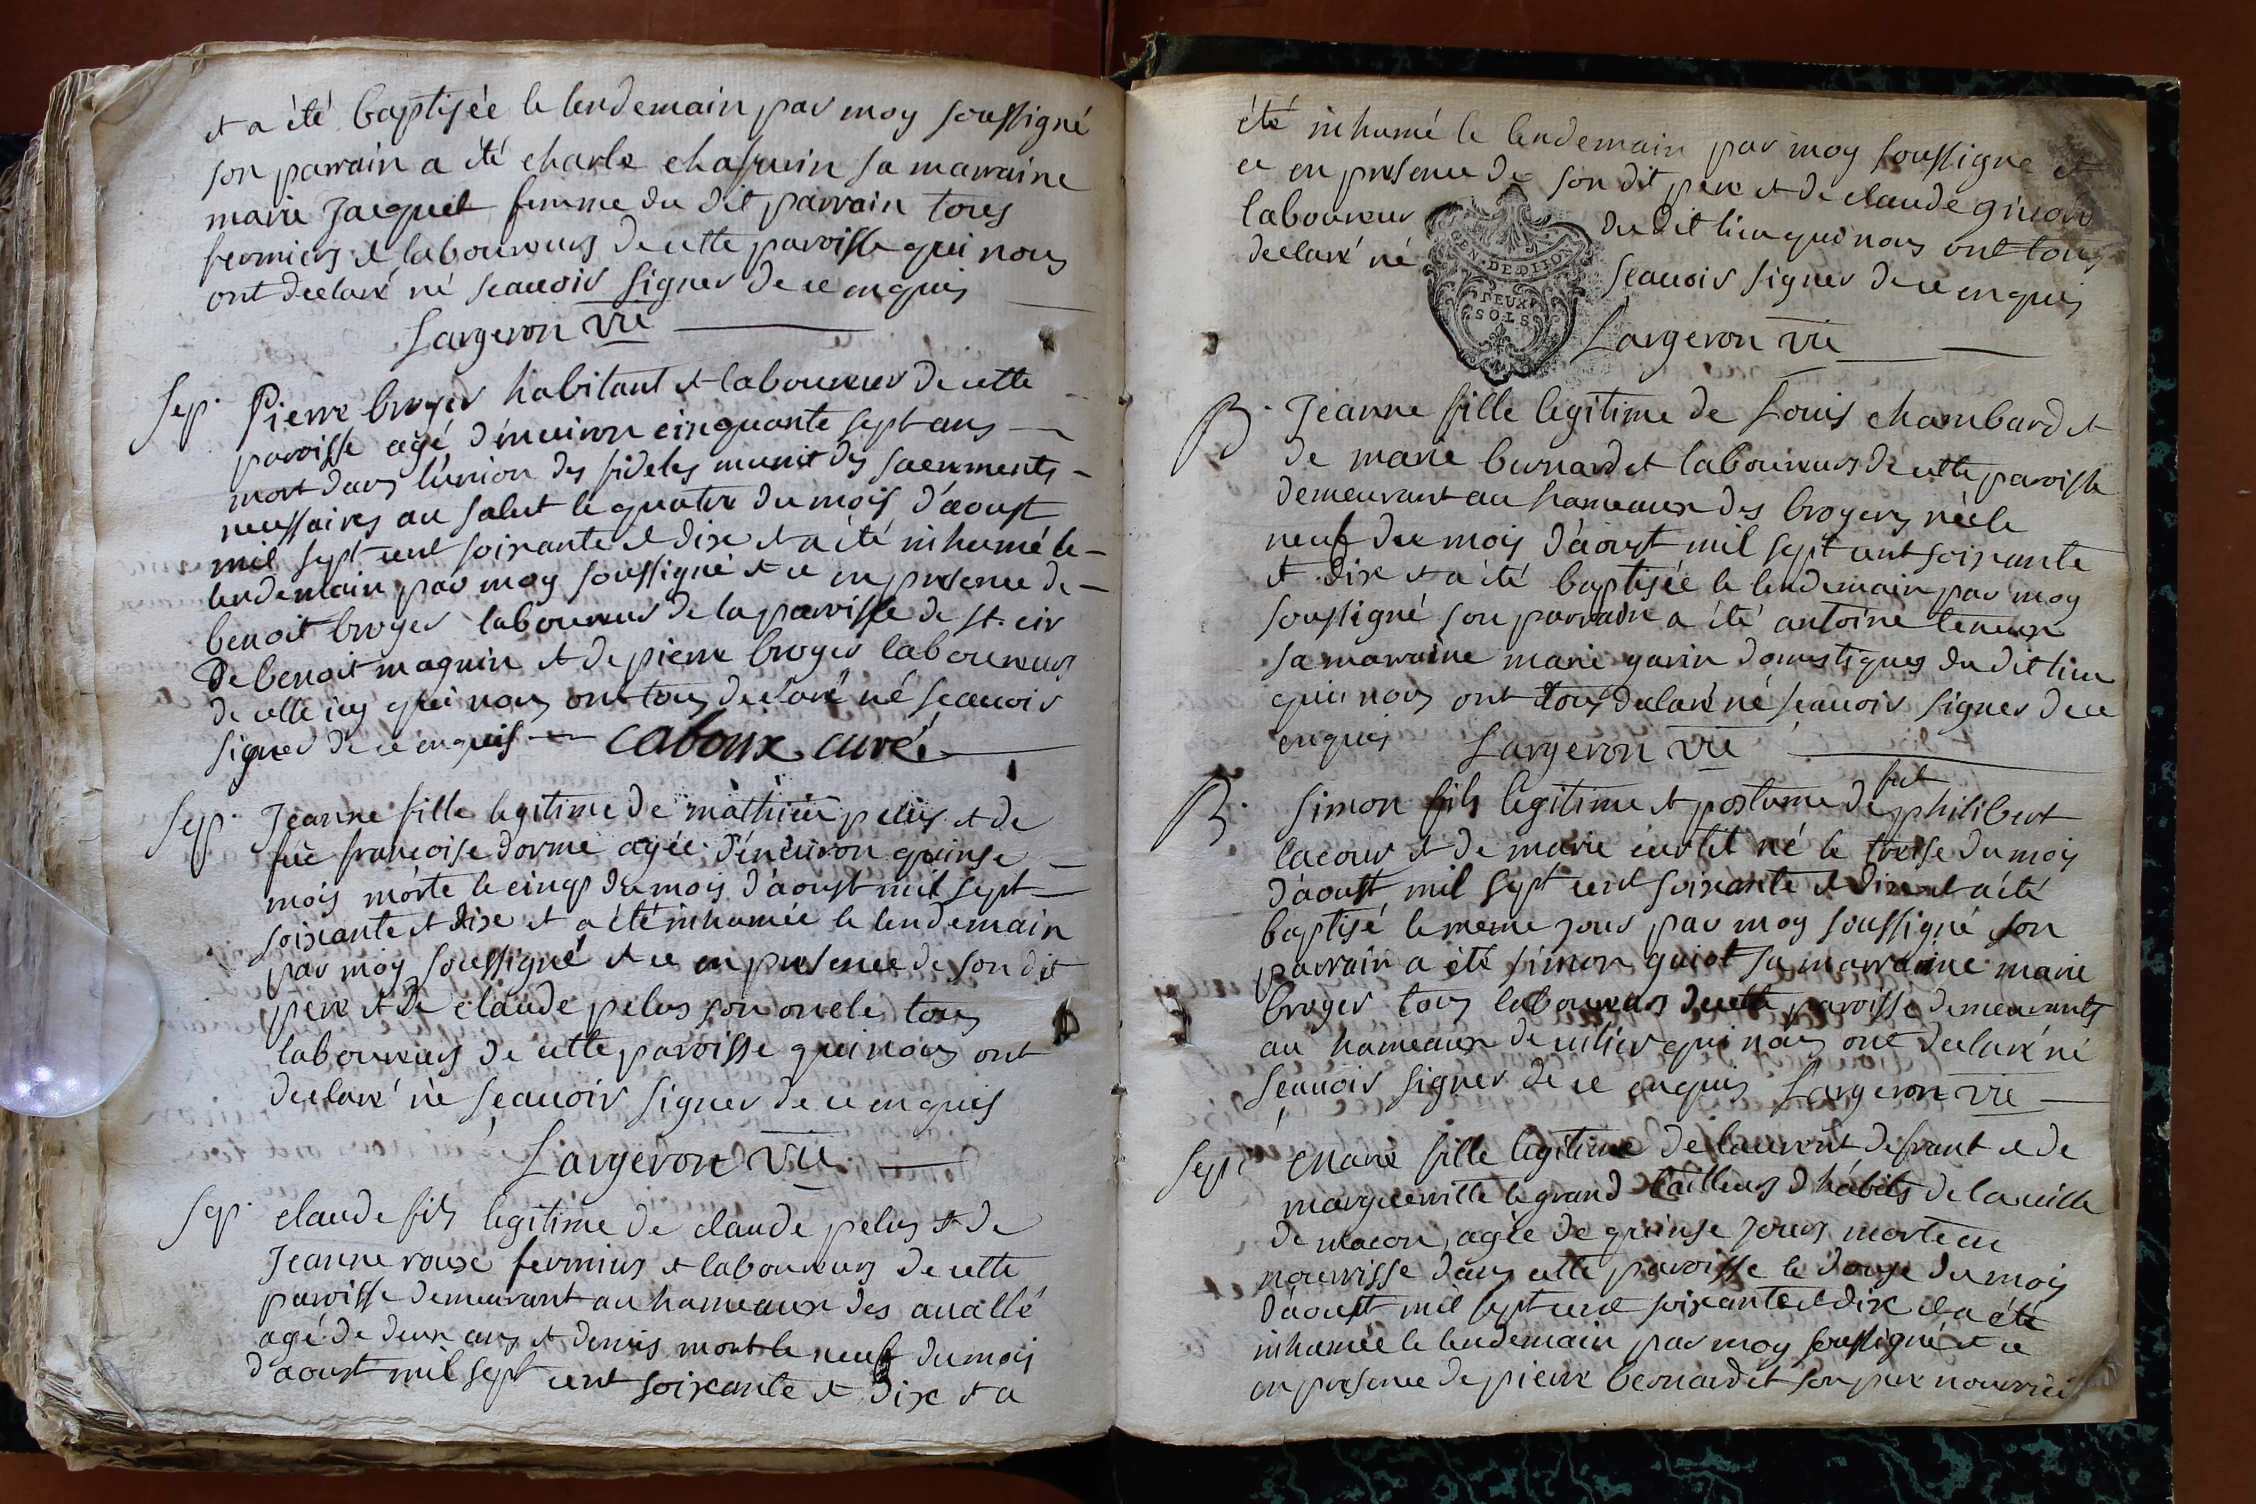 et a été baptisée le lendemain par moy soussigné
son parrain a été charle chapuin sa marraine
marie Jacquet femme du dit parrain tous
fermiers et laboureurs de cette paroisse qui nous
ont declaré né scauoir signer de ce enquis
Largeron vic
Sep. Pierre broyer habitant et laboureur de cette
paroisse agé d'enuiron cinquante sept ans
mort dans l'union des fideles munit des sacrements
necessaires au salut le quatre du mois d'aoust
mil sept cent soixante et dix et a été inhumé le
lendemain par moy soussigné et ce en presence de
benoit broyer laboureur de la paroisse de st. cir
De benoit maguin et de pierre broyer laboureurs
de cette icy qui nous ont tous declaré né scauoir
signer de ce enquis caboux curé
Sep. Jeanne fille legitime de mathieu pelus et de
fue francoise dorme agée d'enuiron quinse
mois morte le cinq du mois d'aoust mil sept
soixante et dix et a été inhumée le lendemain
par moy soussigné et ce en presence de son dit
pere et de claude pelus son oncle tous
laboureurs de cette paroisse qui nous ont
declaré né scauoir signer de ce enquis
Largeron vic
Sep. claude fils legitime de claude pelus et de
Jeanne roux fermiers et laboureurs de cette
paroisse demeurant au hameaux des auallé
agé de deux ans et demis mort le neuf du mois
d'aoust mil sept cent soixante et dix et a
été inhumé le lendemain par moy soussigné et
ce en presence de son dit pere et de claude
laboureur du dit lieu qui nous ont tous
declaré né scauoir signer de ce enquis
GEN. DE DIJON
DEUX
SOLS
Largeron vic
B. Jeanne fille legitime de Louis chambard et
de marie bernardet laboureurs de cette paroisse
demeurant au hameaux des broyers née le
neuf du mois d'aoust mil sept cent soixante
et dix et a été baptisée le lendemain par moy
soussigné son parrain a été antoine
sa marraine marie garin domestiques du dit lieu
qui nous ont tous declaré né scauoir signer de ce
enquis Largeron vic
B. Simon fils legitime et postume de fut philibert
lacour et de marie curtet né le treise du mois
d'aoust mil sept cent soixante et dix et a été
baptisé le meme jour par moy soussigné son
parrain a été simon guiot sa marraine marie
broyer tous laboureurs de cette paroisse demeurants
au hameaux de qui nous ont declaré né
scauoir signer de ce enquis Largeron vic
Sept Marie fille legitime de laurent defrant et de
marguerite legrand tailleurs d'habits de la uille
de macon, agée de quinse jours morte en
nourrisse dans cette paroisse le douse du mois
d'aoust mil sept cent soixante et dix et a été
inhumée le lendemain par moy soussigné et ce
en presence de pierre bernardet son pere nourricié